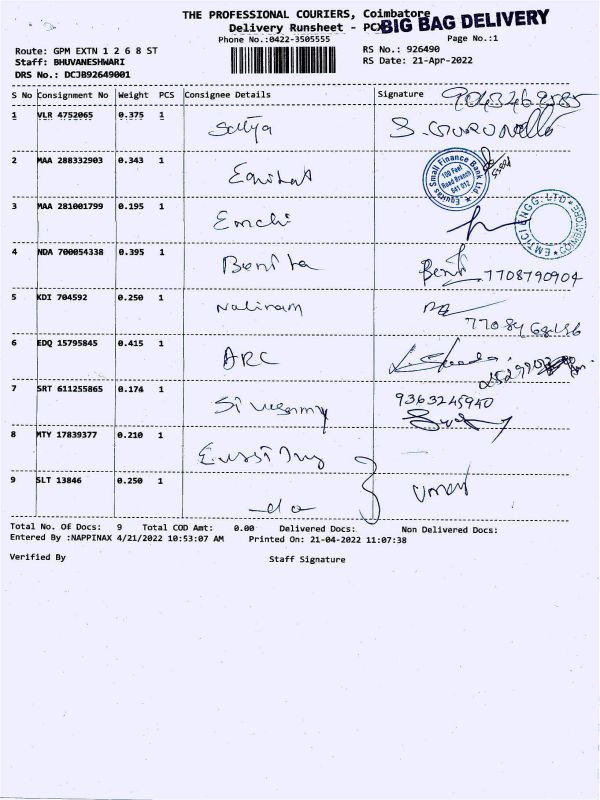 THE PROFESSIONAL COURIERS, Coimbatore
Delivery Runsheet - PCX
BIG BAG DELIVERY
Phone No.:0422-3505555
Page No.:1
Route: GPM EXTN 1 2 6 8 ST
RS No.: 926490
Staff: BHUVANESHWARI
RS Date: 21-Apr-2022
DRS No.: DCJB92649001
S No Consignment No Weight PCS Consignee Details Signature
1 VLR 4752065 0.375 1 Sathya
2 MAA 288332903 0.343 1 Equitas
Equitas Small Finance Bank Ltd.
100 Feet
Road Branch
641 012
3 MAA 281001799 0.195 1
4 NDA 700054338 0.395 1 Benita 7708790904
5 KDI 704592 0.250 1
6 EDQ 15795845 0.415 1 ARC
7 SRT 611255865 0.174 1 9363245940
8 MTY 17839377 0.210 1
9 SLT 13846 0.250 1 do
Total No. Of Docs: 9 Total COD Amt: 0.00 Delivered Docs: Non Delivered Docs:
Entered By :NAPPINAX 4/21/2022 10:53:07 AM Printed On: 21-04-2022 11:07:38
Verified By Staff Signature